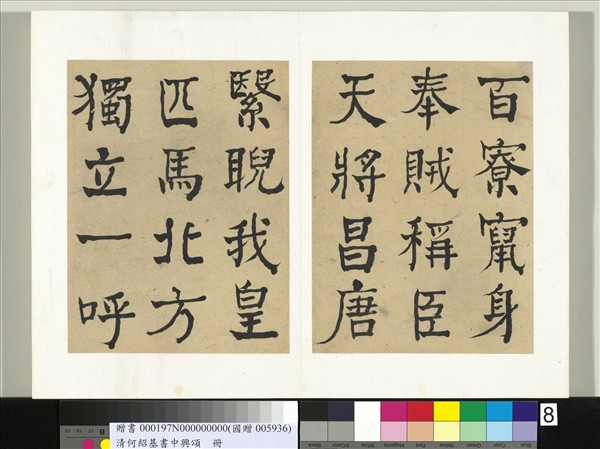 百寮竄身
奉賊稱臣
天將昌唐
繄睨我皇
匹馬北方
獨立一呼
贈書 000197N000000000(國贈 005936)
清何紹基書中興頌 冊
8